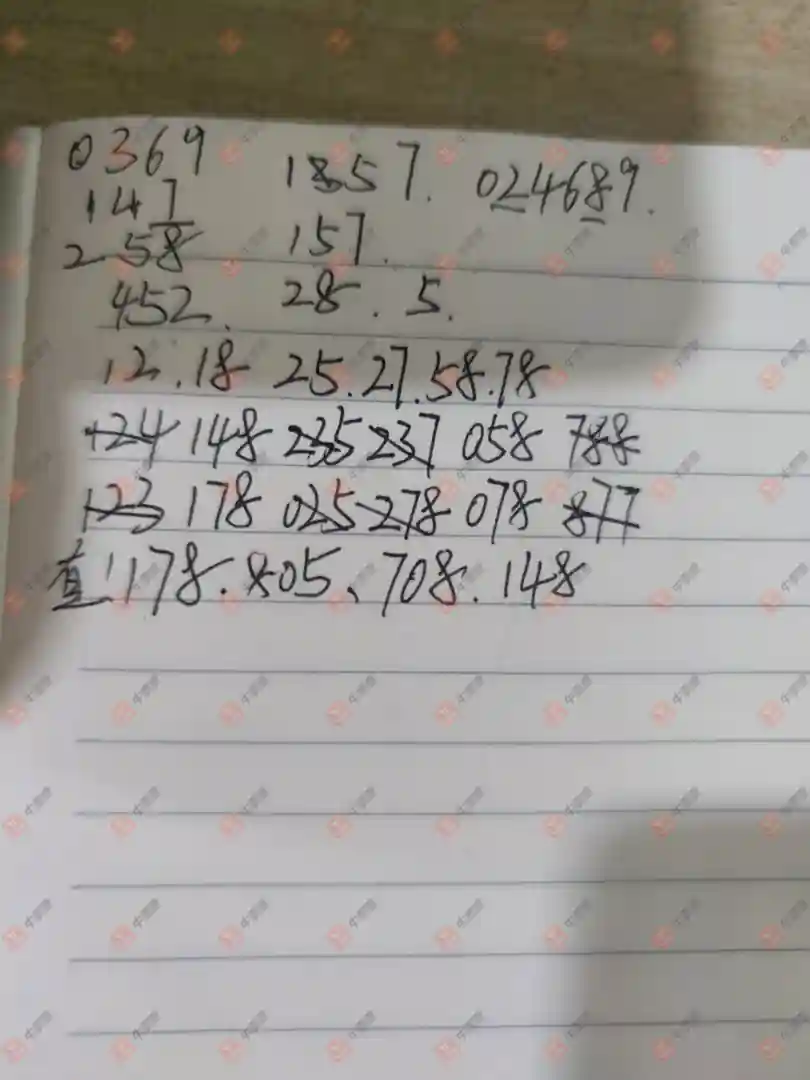 0369 1857. 024689.
147
258 157.
452. 28. 5.
12.18 25.27.58.78
124 148 235 237 058 788
123 178 025 278 078 877
直:178.805、708.148